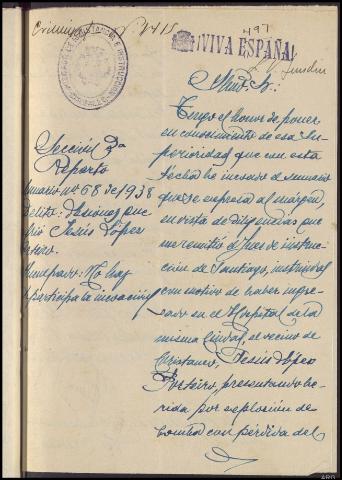 Criminal nº 2415
497
¡VIVA ESPAÑA!
JUZGADO DE 1ª INSTANCIA E INSTRUCCION
Iltmo. Sr.:
Tengo el honor de poner
en conocimiento de esa Su-
perioridad que con esta
fecha he incoado el sumario
que se expresa al márgen,
en vista de diligencias que
me remitió el Juez de instruc-
ción de Santiago, instruidas
con motivo de haber ingre-
sado en el Hospital de la
misma Ciudad, el vecino de
Jesús López
Porteiro, presentando he-
rida por explosión de
bomba con pérdida del
Sección 3ª
Reparto
umario nº 68 de 1938
Delito: Lesiones que
frió Jesús López
orteiro.
Inculpado: No hay
Se participa la incoación